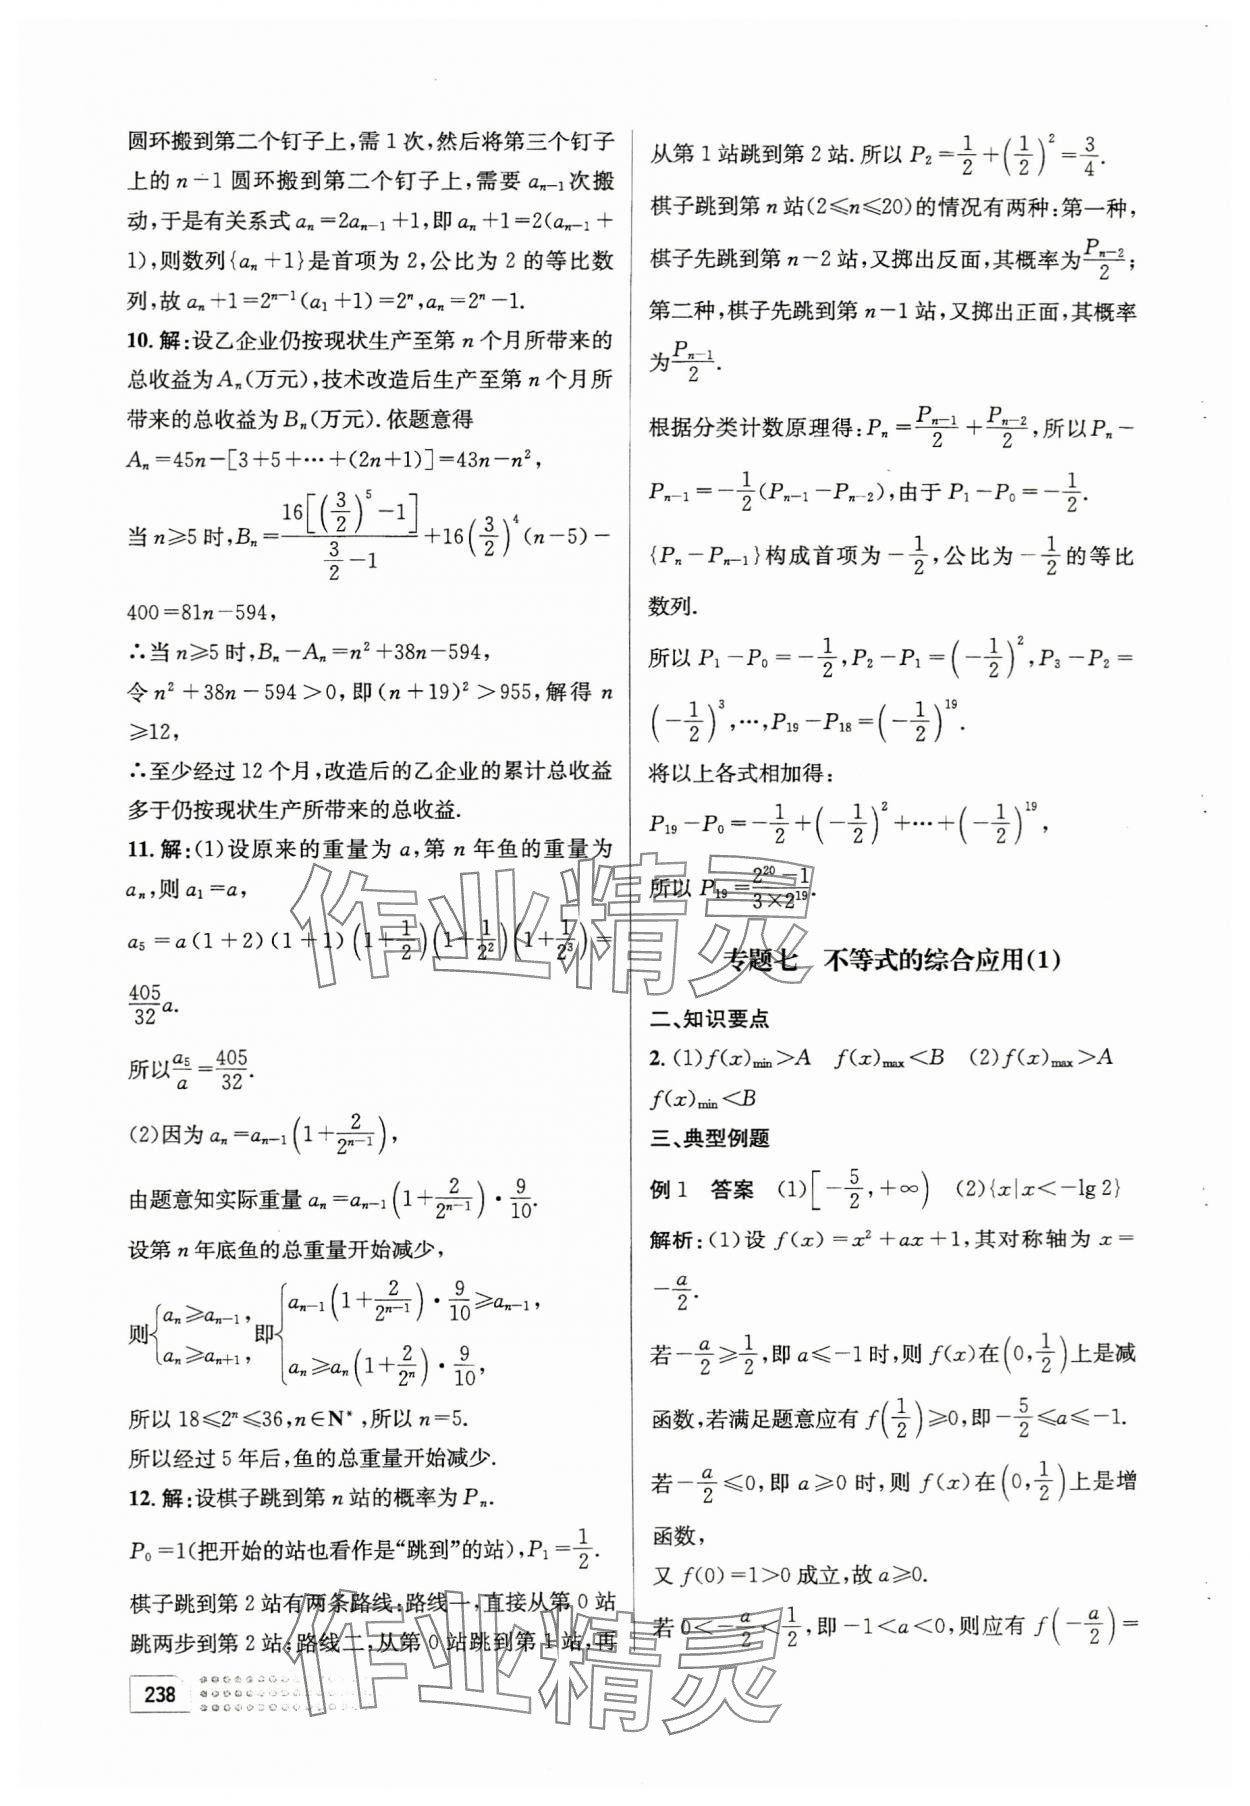 圆环搬到第二个钉子上,需1次,然后将第三个钉子
上的 n-1 圆环搬到第二个钉子上,需要 aₙ₋₁ 次搬
动,于是有关系式 aₙ=2aₙ₋₁+1,即 aₙ+1=2(aₙ₋₁+
1),则数列{aₙ+1}是首项为2,公比为2的等比数
列,故 aₙ+1=2ⁿ⁻¹(a₁+1)=2ⁿ,aₙ=2ⁿ-1.
10. 解:设乙企业仍按现状生产至第 n 个月所带来的
总收益为 Aₙ(万元),技术改造后生产至第 n 个月所
带来的总收益为 Bₙ(万元).依题意得
Aₙ=45n-[3+5+…+(2n+1)]=43n-n²,
当 n≥5 时,Bₙ=16[(3/2)⁵-1]/(3/2-1)+16(3/2)⁴(n-5)-
400=81n-594,
∴当 n≥5 时,Bₙ-Aₙ=n²+38n-594,
令 n²+38n-594>0,即(n+19)²>955,解得 n
≥12,
∴至少经过12个月,改造后的乙企业的累计总收益
多于仍按现状生产所带来的总收益.
11. 解:(1)设原来的重量为 a,第 n 年鱼的重量为
aₙ,则 a₁=a,
a₅=a(1+2)(1+1)(1+1/2)(1+1/2²)(1+1/2³)=
405/32 a.
所以 a₅/a=405/32.
(2)因为 aₙ=aₙ₋₁(1+2/2ⁿ⁻¹),
由题意知实际重量 aₙ=aₙ₋₁(1+2/2ⁿ⁻¹)·9/10.
设第 n 年底鱼的总重量开始减少,
则{aₙ≥aₙ₋₁, aₙ≥aₙ₊₁, 即{aₙ₋₁(1+2/2ⁿ⁻¹)·9/10≥aₙ₋₁, aₙ≥aₙ(1+2/2ⁿ)·9/10,
所以 18≤2ⁿ≤36,n∈N*,所以 n=5.
所以经过5年后,鱼的总重量开始减少.
12. 解:设棋子跳到第 n 站的概率为 Pₙ.
P₀=1(把开始的站也看作是“跳到”的站),P₁=1/2.
棋子跳到第2站有两条路线:路线一,直接从第0站
跳两步到第2站;路线二,从第0站跳到第1站,再
238
从第1站跳到第2站.所以 P₂=1/2+(1/2)²=3/4.
棋子跳到第 n 站(2≤n≤20)的情况有两种:第一种,
棋子先跳到第 n-2 站,又掷出反面,其概率为 Pₙ₋₂/2;
第二种,棋子先跳到第 n-1 站,又掷出正面,其概率
为 Pₙ₋₁/2.
根据分类计数原理得:Pₙ=Pₙ₋₁/2+Pₙ₋₂/2,所以 Pₙ-
Pₙ₋₁=-1/2(Pₙ₋₁-Pₙ₋₂),由于 P₁-P₀=-1/2.
{Pₙ-Pₙ₋₁}构成首项为-1/2,公比为-1/2的等比
数列.
所以 P₁-P₀=-1/2,P₂-P₁=(-1/2)²,P₃-P₂=
(-1/2)³,…,P₁₉-P₁₈=(-1/2)¹⁹.
将以上各式相加得:
P₁₉-P₀=-1/2+(-1/2)²+…+(-1/2)¹⁹,
所以 P₁₉=(2²⁰-1)/(3×2¹⁹).
专题七 不等式的综合应用(1)
二、知识要点
2. (1)f(x)min>A f(x)max<B (2)f(x)max>A
f(x)min<B
三、典型例题
例1 答案 (1)[-5/2,+∞) (2){x|x<-lg2}
解析:(1)设 f(x)=x²+ax+1,其对称轴为 x=
-a/2.
若-a/2≥1/2,即 a≤-1 时,则 f(x)在(0,1/2)上是减
函数,若满足题意应有 f(1/2)≥0,即-5/2≤a≤-1.
若-a/2≤0,即 a≥0 时,则 f(x)在(0,1/2)上是增
函数,
又 f(0)=1>0 成立,故 a≥0.
若 0<-a/2<1/2,即-1<a<0,则应有 f(-a/2)=
作业精灵
作业精灵